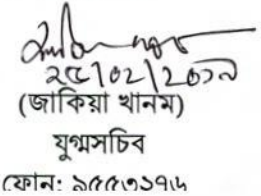 ২৫/০২/২০১৯
(জাকিয়া খানম)
যুগ্মসচিব
ফোন: ৯৫৫৩১৭৬